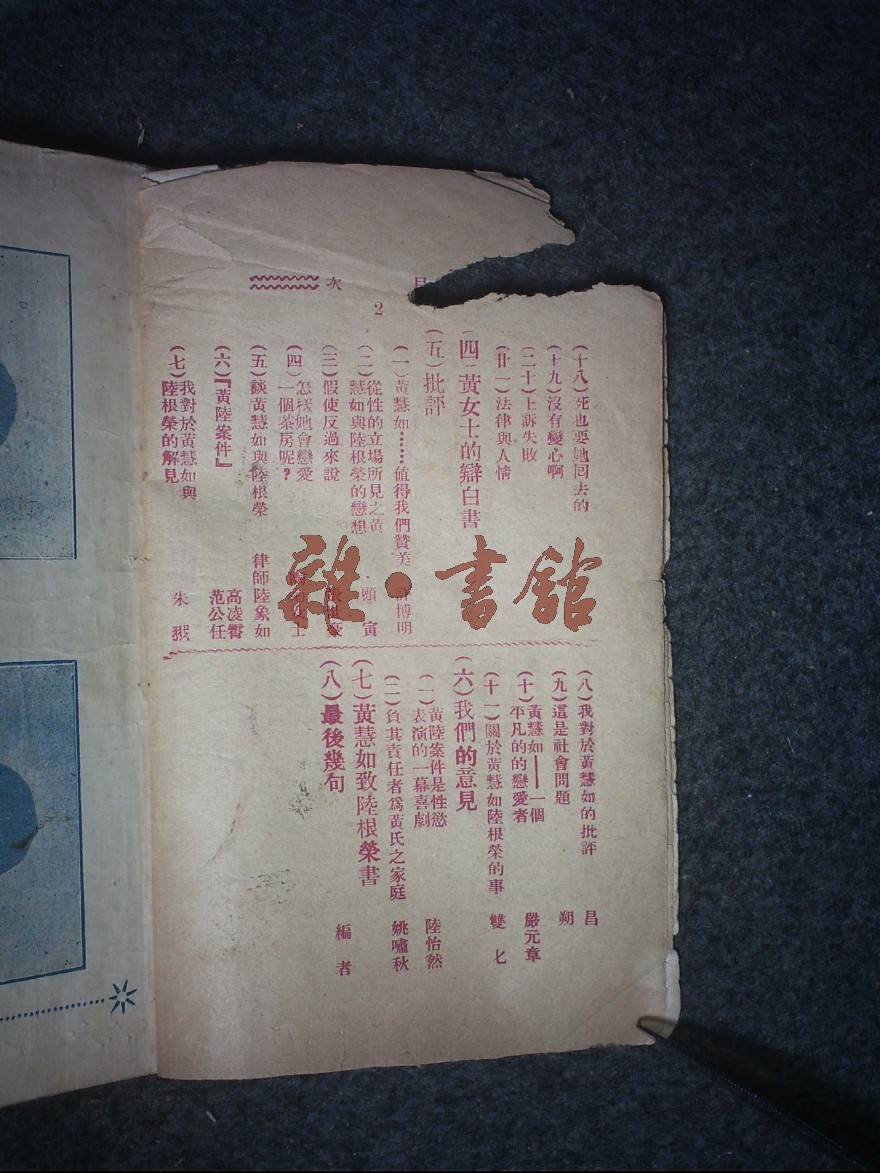 目次
2
（十八）死也要她回去的
（十九）沒有變心啊
（二十）上訴失敗
（廿一）法律與人情
（四）黃女士的辯白書
（五）批評
（一）黃慧如……値得我們贊美 博明
（二）從性的立場所見之黃
慧如與陸根榮的戀想 顧寅
（三）假使反過來說
（四）怎樣她會戀愛
一個茶房呢？ 女士
（五）談黃慧如與陸根榮 律師陸象如
（六）『黃陸案件』 高凌霄
范公任
（七）我對於黃慧如與
陸根榮的解見 朱
（八）我對於黃慧如的批評 昌
（九）這是社會問題 朔
（十）黃慧如——一個
平凡的的戀愛者 嚴元章
（十一）關於黃慧如陸根榮的事 雙
（六）我們的意見
（一）黃陸案件是性慾
表演的一幕喜劇 陸怡然
（二）負其責任者爲黃氏之家庭 姚嘯秋
（七）黃慧如致陸根榮書
（八）最後幾句 編者
雜·書舘